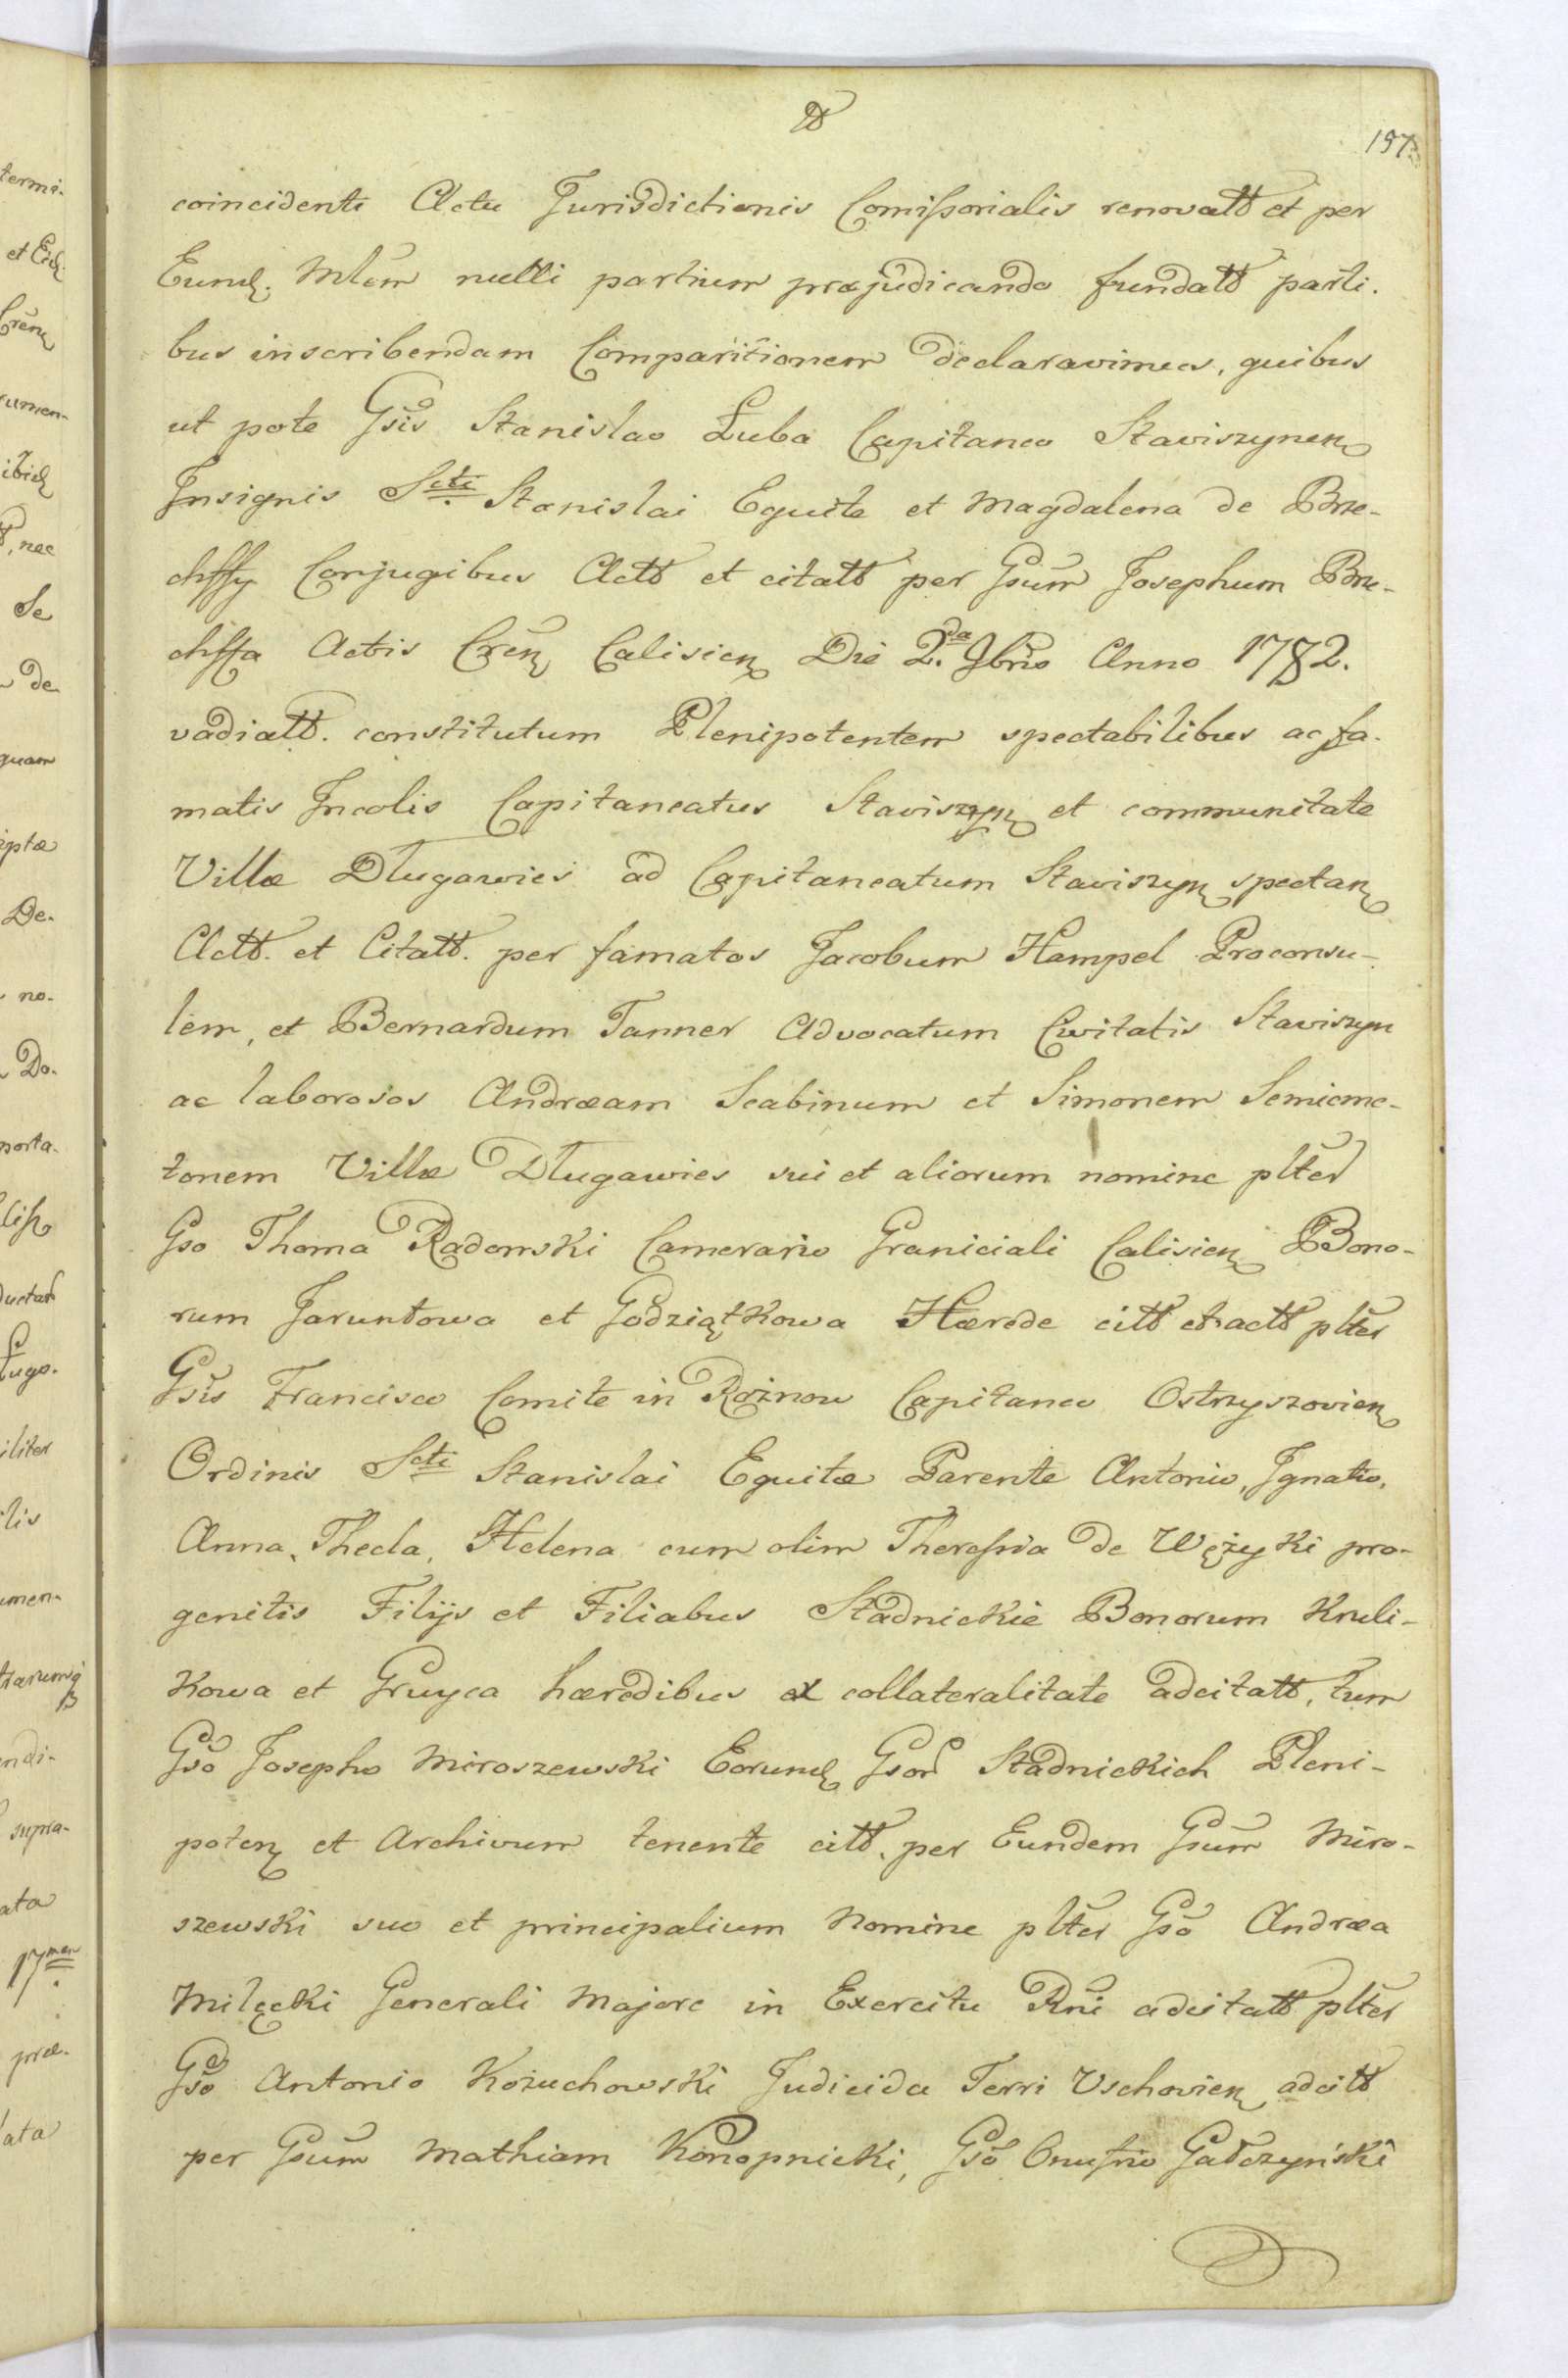 197.
coincidenti Actu Jurisdictionis Comissorialis renovatt et per
Eund. Mlem nulli partium præjudicando fundatt parti.
bus inscribendam Comparitionem declaravimus, quibus
ut pote Gsis Stanislao Łuba Capitaneo Staviszynen
Insignis Scti Stanislai Equite et Magdalena de Bne-
Conjugibus Actt et citatt per Gsum Josephum Bne-
Actis Cren Calisien Die 2.da 9bris Anno 1782.
vadiatt. constitutum Plenipotentem spectabilibus ac fa-
matis Incolis Capitaneatus Staviszyn et communitate
Villæ Długawies ad Capitaneatum Staviszyn spectan
Actt. et Citatt. per famatos Jacobum Hampel Proconsu-
lem, et Bernardum Tanner Advocatum Civitatis Staviszyn
ac laborosos Andræam Scabinum et Simonem Semicme-
tonem Villæ Długawies sui et aliorum nomine plter
Gso Thoma Radomski Camerario Graniciali Calisien Bono-
rum Jaruntowa et Godziątkowa Hærede citt et actt plter
Gsis Francisco Comite in Rożnow Capitaneo Ostrzyszovien
Ordinis Scti Stanislai Equite Parente Antonio, Ignatio,
Anna, Thecla, Helena cum olim Theressia de Wężyki pro-
genitis Filijs et Filiabus Stadnickie Bonorum Kruli-
kowa et Gruyca hæredibus ex collateralitate adcitatt, tum
Gso Josepho Miroszewski Eorund Gsor Stadnickich Pleni-
poten et Archivum tenente citt. per Eundem Gsum Miro-
szewski suo et principalium Nomine plter Gso Andræa
Milęcki Generali Majore in Exercitu Rni adcitatt plter
Gso Antonio Kożuchowski Judicida Terri Vschovien adcitt
per Gsum Mathiam Konopnicki, Gso Onufrio Gałczyński